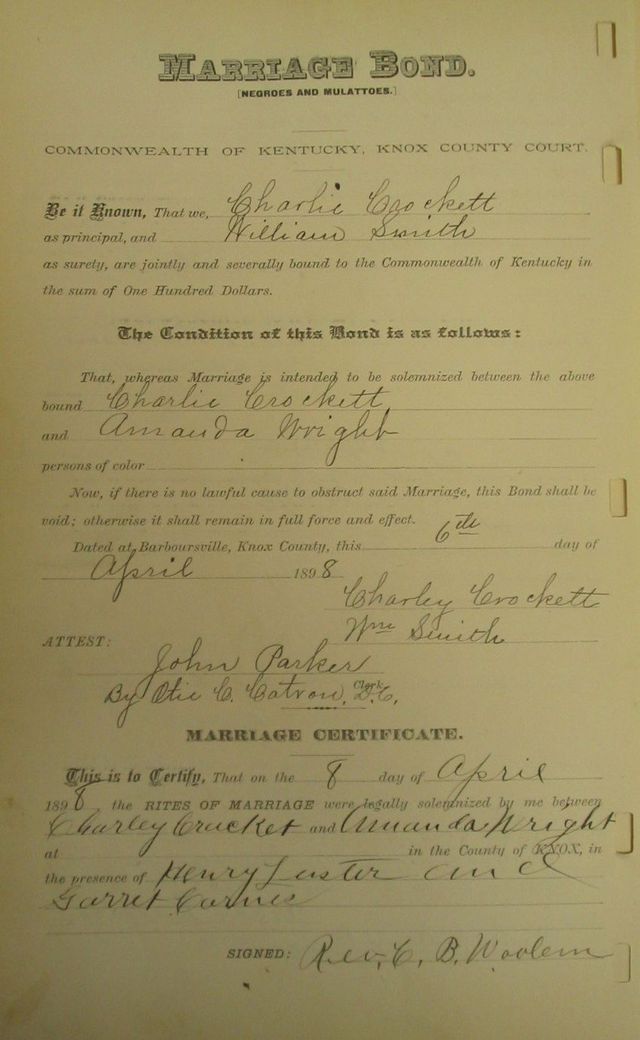 MARRIAGE BOND.
[NEGROES AND MULATTOES.]
COMMONWEALTH OF KENTUCKY, KNOX COUNTY COURT.
Be it Known, That we, Charlie Crockett
as principal, and William Smith
as surety, are jointly and severally bound to the Commonwealth of Kentucky in
the sum of One Hundred Dollars.
The Condition of this Bond is as follows:
That, whereas Marriage is intended to be solemnized between the above
bound Charlie Crockett
and Amanda Wright
persons of color
Now, if there is no lawful cause to obstruct said Marriage, this Bond shall be
void; otherwise it shall remain in full force and effect.
Dated at Barboursville, Knox County, this 6th day of
April 1898
Charley Crockett
Wm Smith
ATTEST:
John Parker
Clerk
By Otie C. Catron, D.C.,
MARRIAGE CERTIFICATE.
This is to Certify, That on the 8 day of April
1898, the RITES OF MARRIAGE were legally solemnized by me between
Charley Crocket and Amanda Wright
at in the County of KNOX, in
the presence of Henry Luster and
Garret
SIGNED: Rev. C. B. Woolem